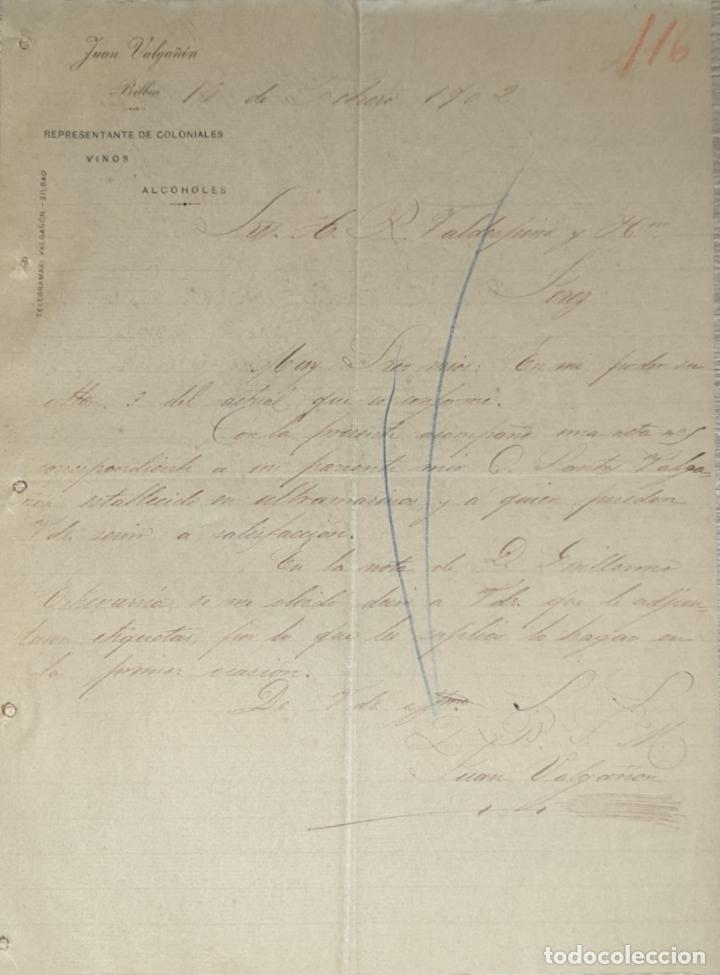 116
Juan Valgañón
Bilbao de Febrero 1902
REPRESENTANTE DE COLONIALES
VINOS
ALCOHOLES
TELEGRAMAS: VALGAÑÓN.-BILBAO
Sres. A. R. Valdespino y Hno.
Jerez
Muy Sres mios: En mi poder su
3 del actual que es conforme.
Con la presente acompaño una nota
correspondiente a un pariente mio D. Santos Valga-
ñon establecido en ultramarinos y a quien pueden
Vds. servir a satisfacción.
En la nota de D. Guillermo
Echevarria, se me olvidó decir a Vds. que le adjun-
tasen etiquetas, por lo que les suplico lo hagan en
la primer ocasión.
De Vds. S. S.
Q. B. S. M.
Juan Valgañon
todocoleccion